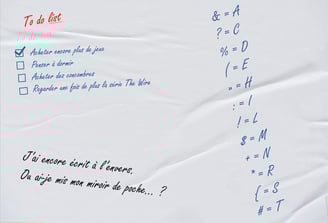 To do list
Acheter encore plus de jeux
Penser à dormir
Acheter des concombres
Regarder une fois de plus la série The Wire
J'ai encore écrit à l'envers.
Ou ai-je mis mon miroir de poche... ?
& = A
? = C
% = D
( = E
" = H
: = I
! = L
$ = M
+ = N
* = R
{ = S
# = T